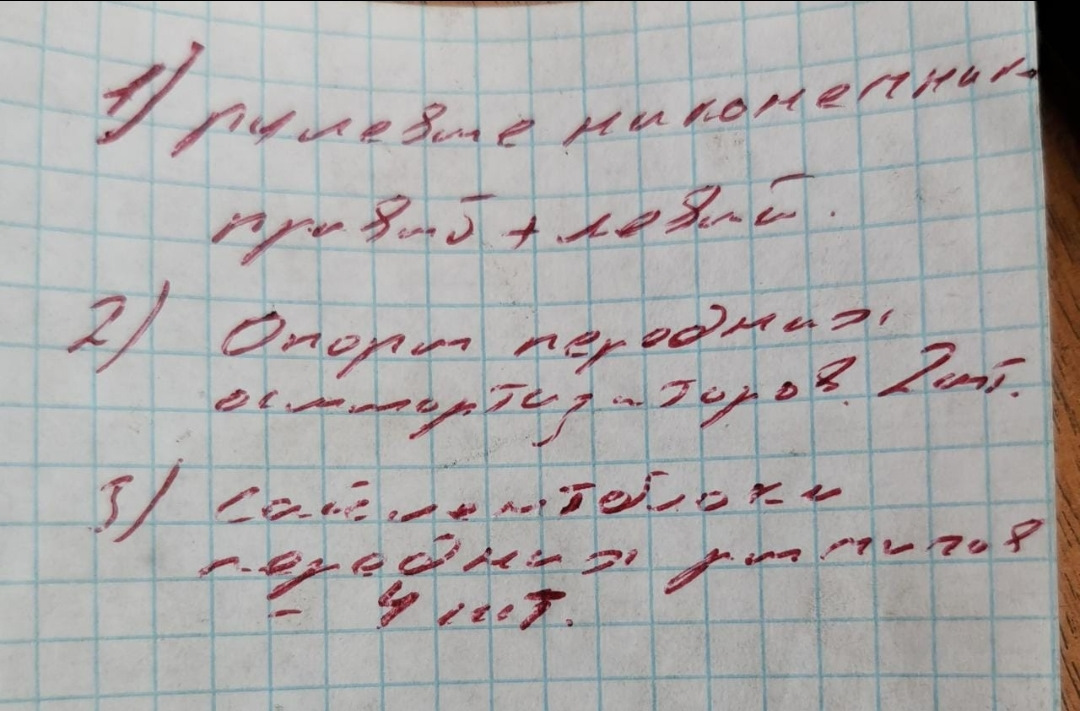 1) рулевые наконечник
правый + левый.
2) Опоры передних
аммортизаторов. 2шт.
3) Сайлентблоки
передних рычагов
- 4 шт.